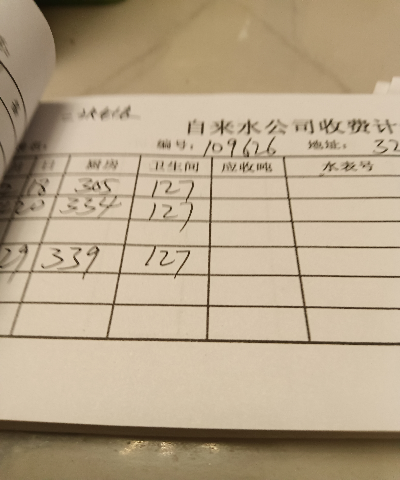 自来水公司收费计
编号: 109626 地址: 32
日 厨房 卫生间 应收吨 水表号
18 305 127
20 334 127
29 339 127